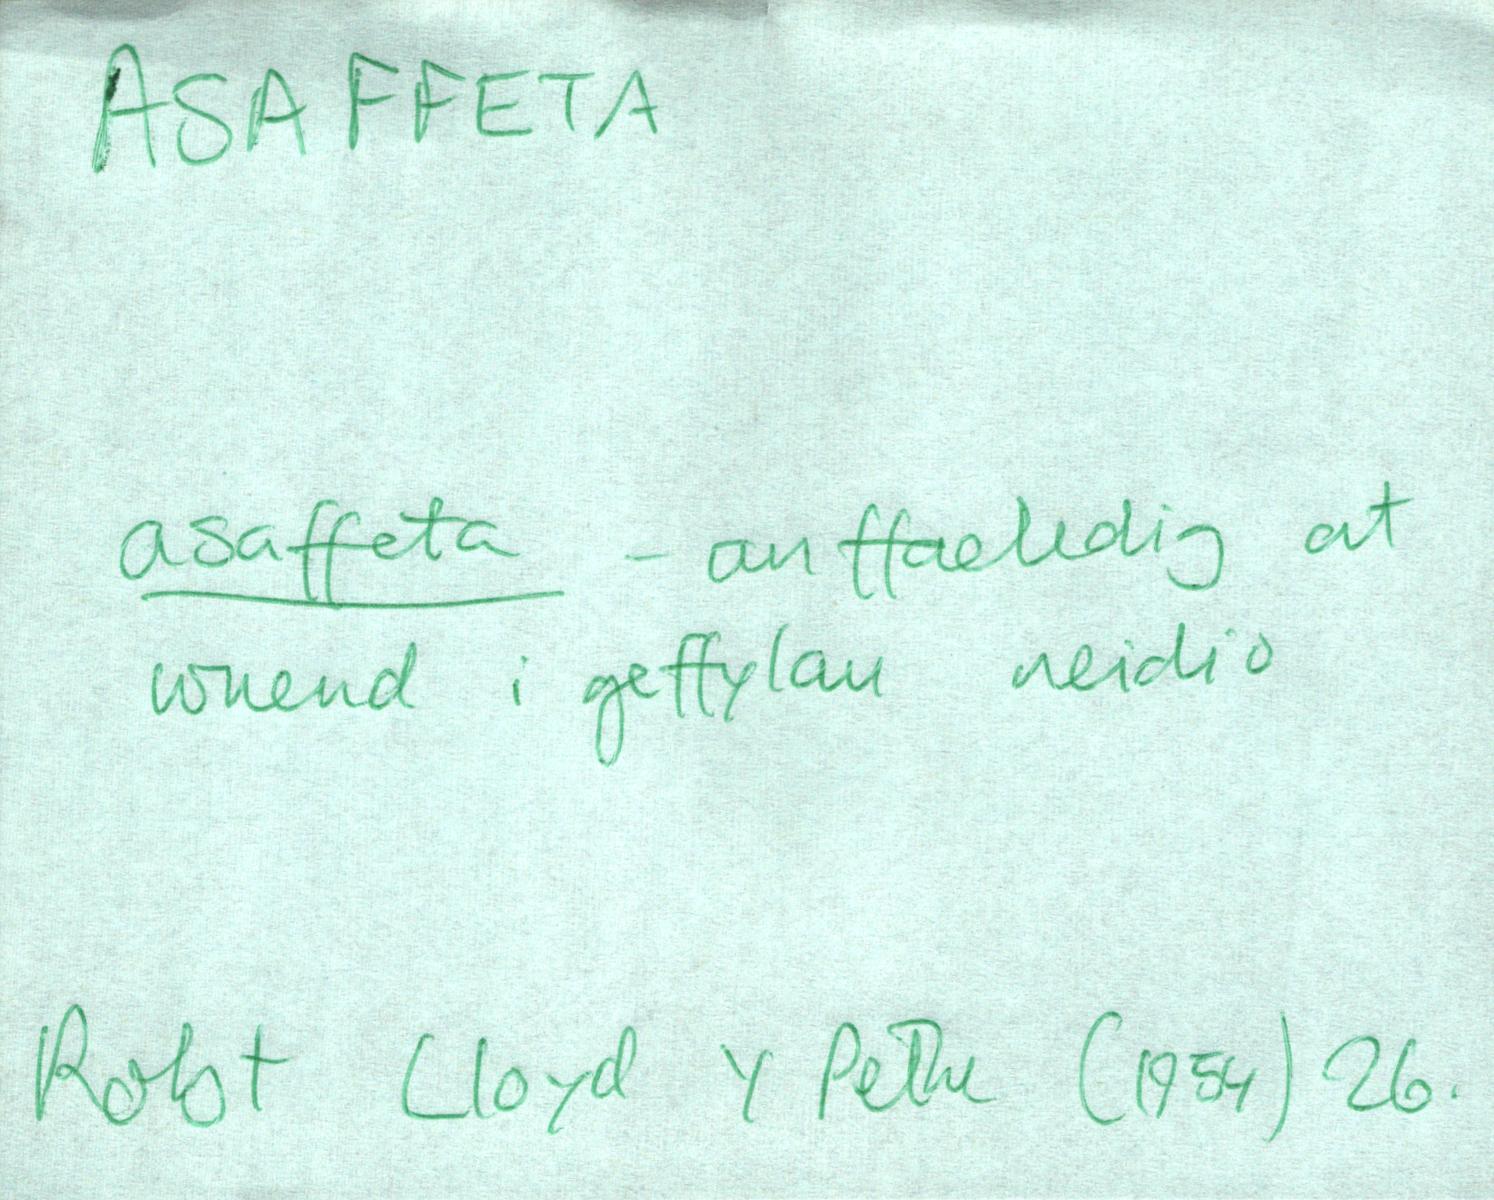 ASAFFETA
asaffeta - anffaeledig at
wneud i geffylau neidio
Robt Lloyd Y Pethe (1954) 26.